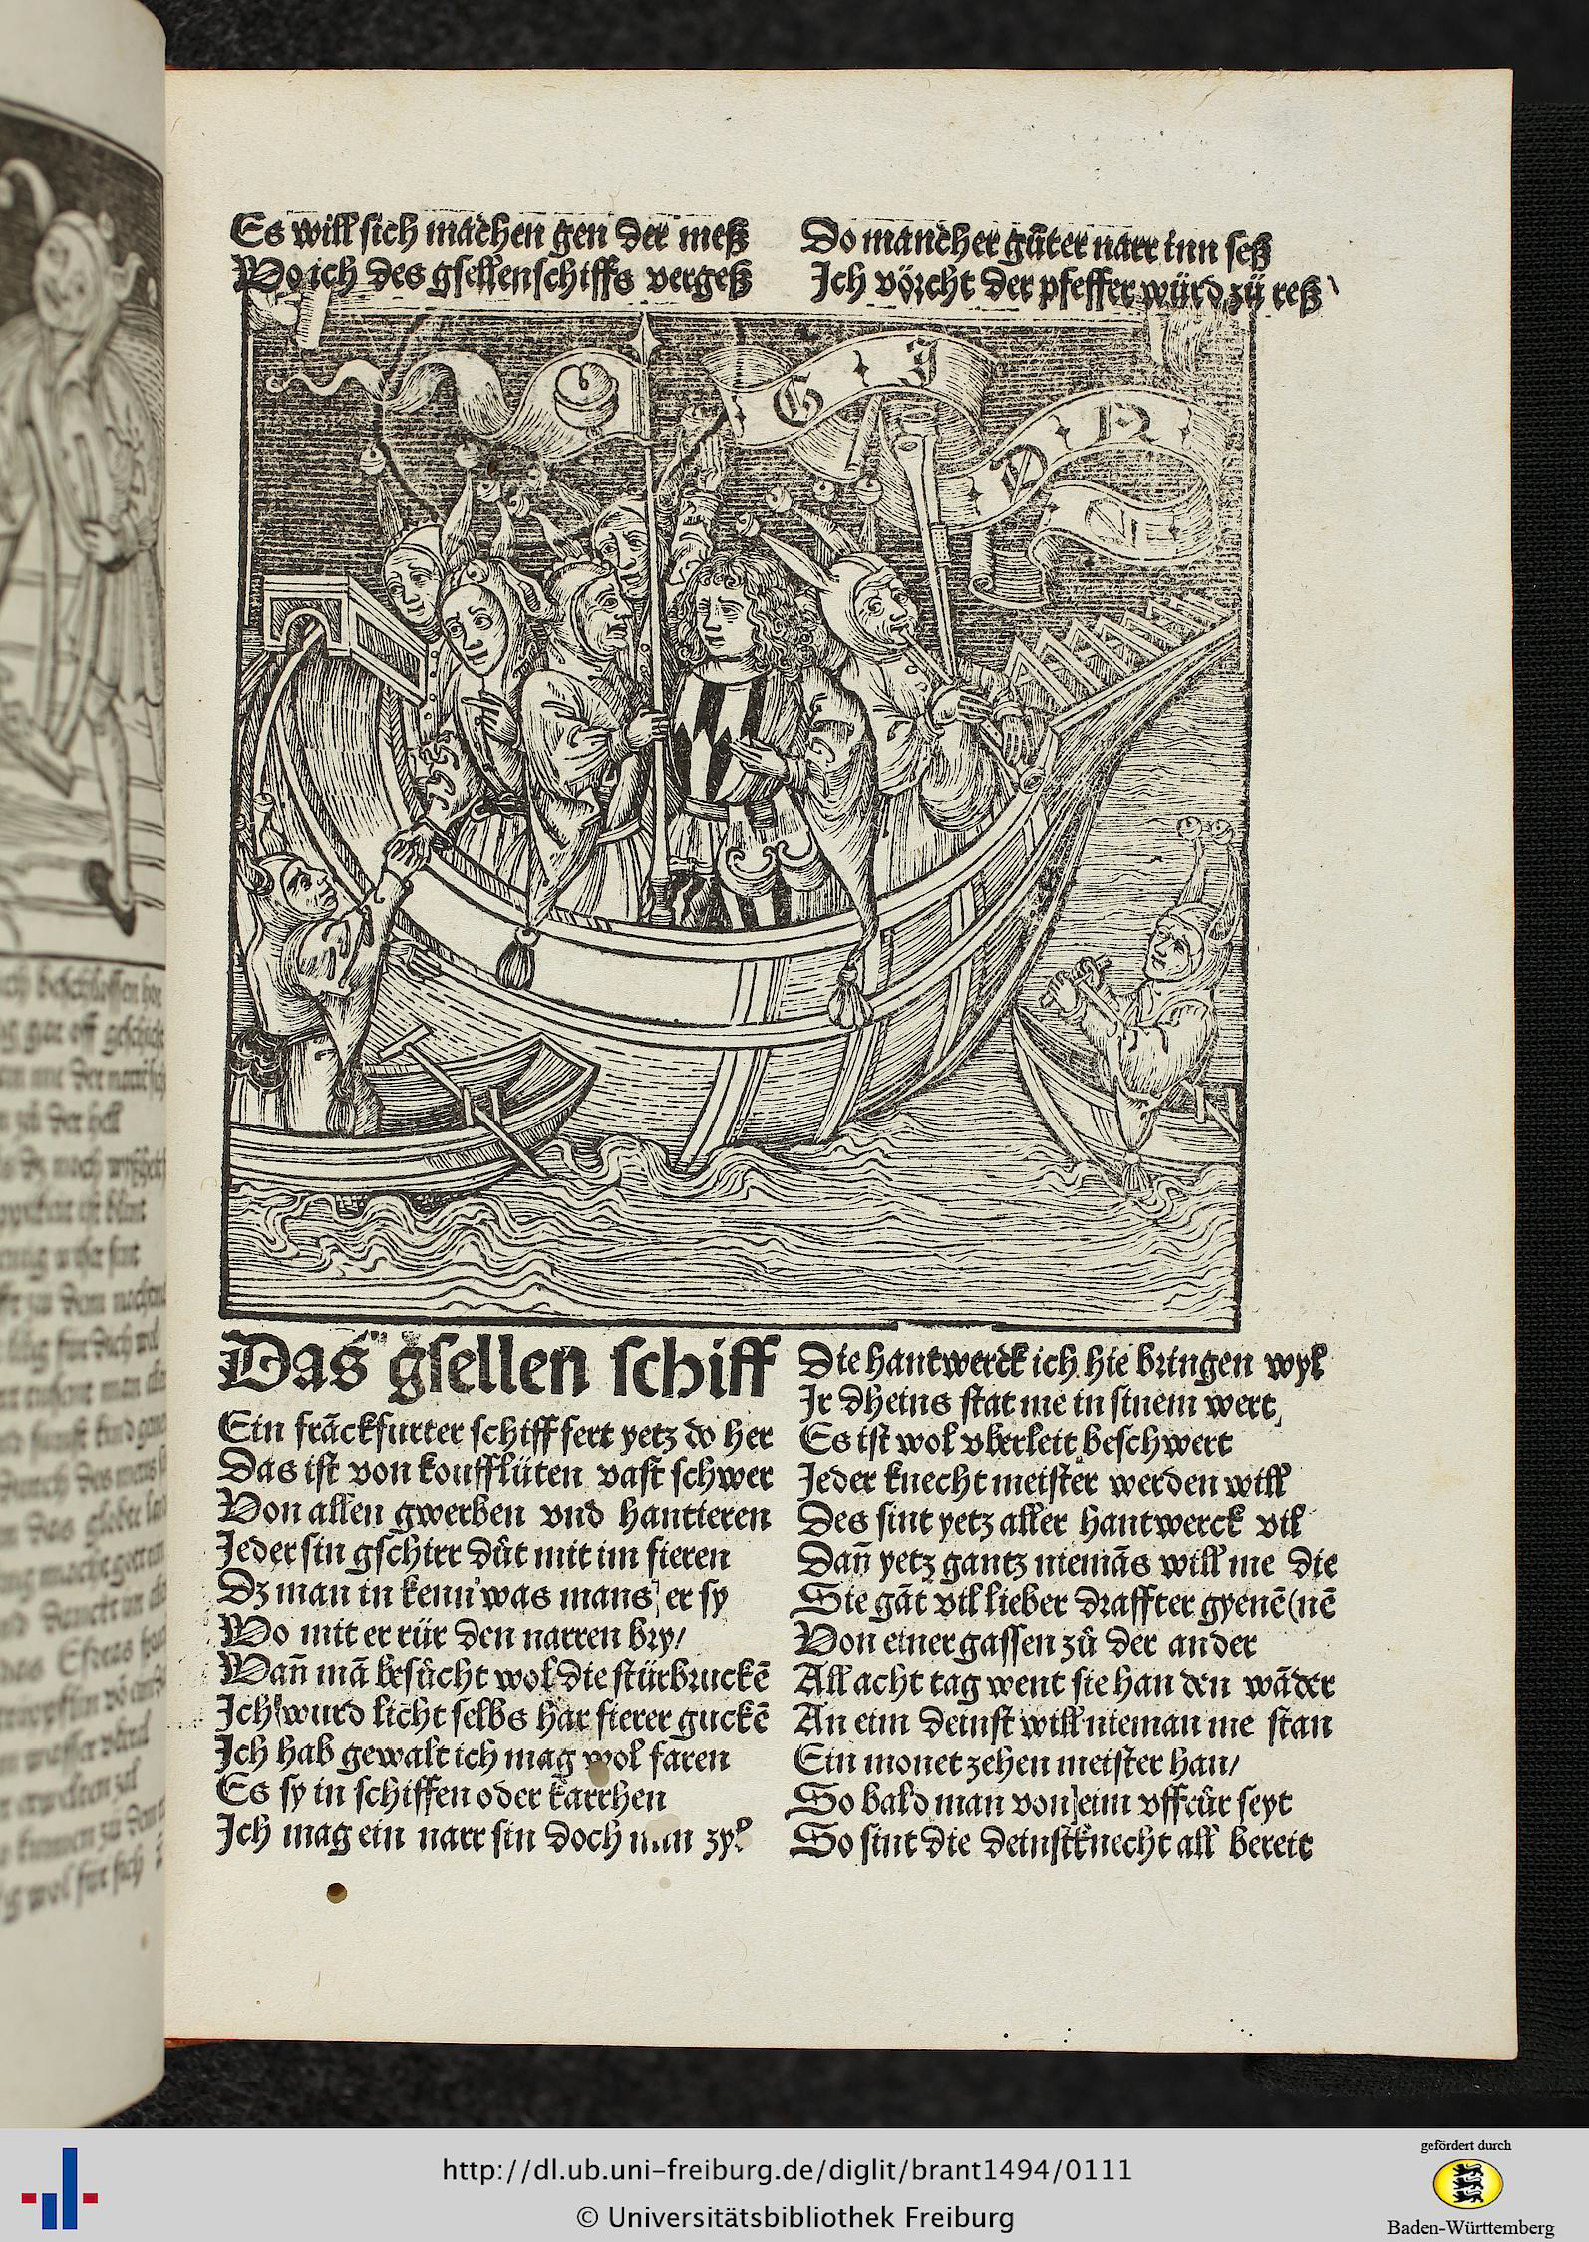 Es will sich machen gen der meß
Wo ich des gsellenschiffs vergeß
Do mancher gůter narr inn seß
Ich vörcht der pfeffer würd zů reß
G I
D N
Das gsellen schiff
Ein frāckfurter schiff fert yetz do her
Das ist von koufflüten vast schwer
Von allen gwerben vnd hantieren
Jeder sin gschirr důt mit im fieren
Dz man in kenn was mans er sy
Wo mit er rür den narren bry/
Wañ mā besůcht wol die stürbruckē
Ich wurd licht selbs har fierer guckē
Ich hab gewalt ich mag wol faren
Es sy in schiffen oder karrhen
Ich mag ein narr sin doch zyl
Die hantwerck ich hie bringen wyl
Ir dheins stat me in sinem wert
Es ist wol vberleit beschwert
Jeder knecht meister werden will
Des sint yetz aller hantwerck vil
Dañ yetz gantz niemās will me die
Sie gāt vil lieber draffter gyenē (nē
Von einer gassen zů der ander
All acht tag went sie han den wāder
An eim deinst will nieman me stan
Ein monet zehen meister han/
So bald man von eim vffrůr seyt
So sint die deinstknecht all bereit
http://dl.ub.uni-freiburg.de/diglit/brant1494/0111
© Universitätsbibliothek Freiburg
gefördert durch
Baden-Württemberg